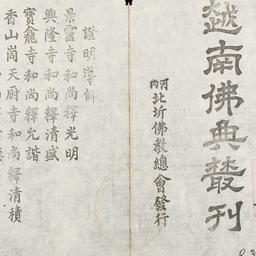 越南佛典叢刊
河內
北圻佛教總會發行
證明導師
景靈寺和尚釋光明
興隆寺和尚釋清盛
寶龕寺和尚釋允諧
香山崗天廚寺和尚釋清積